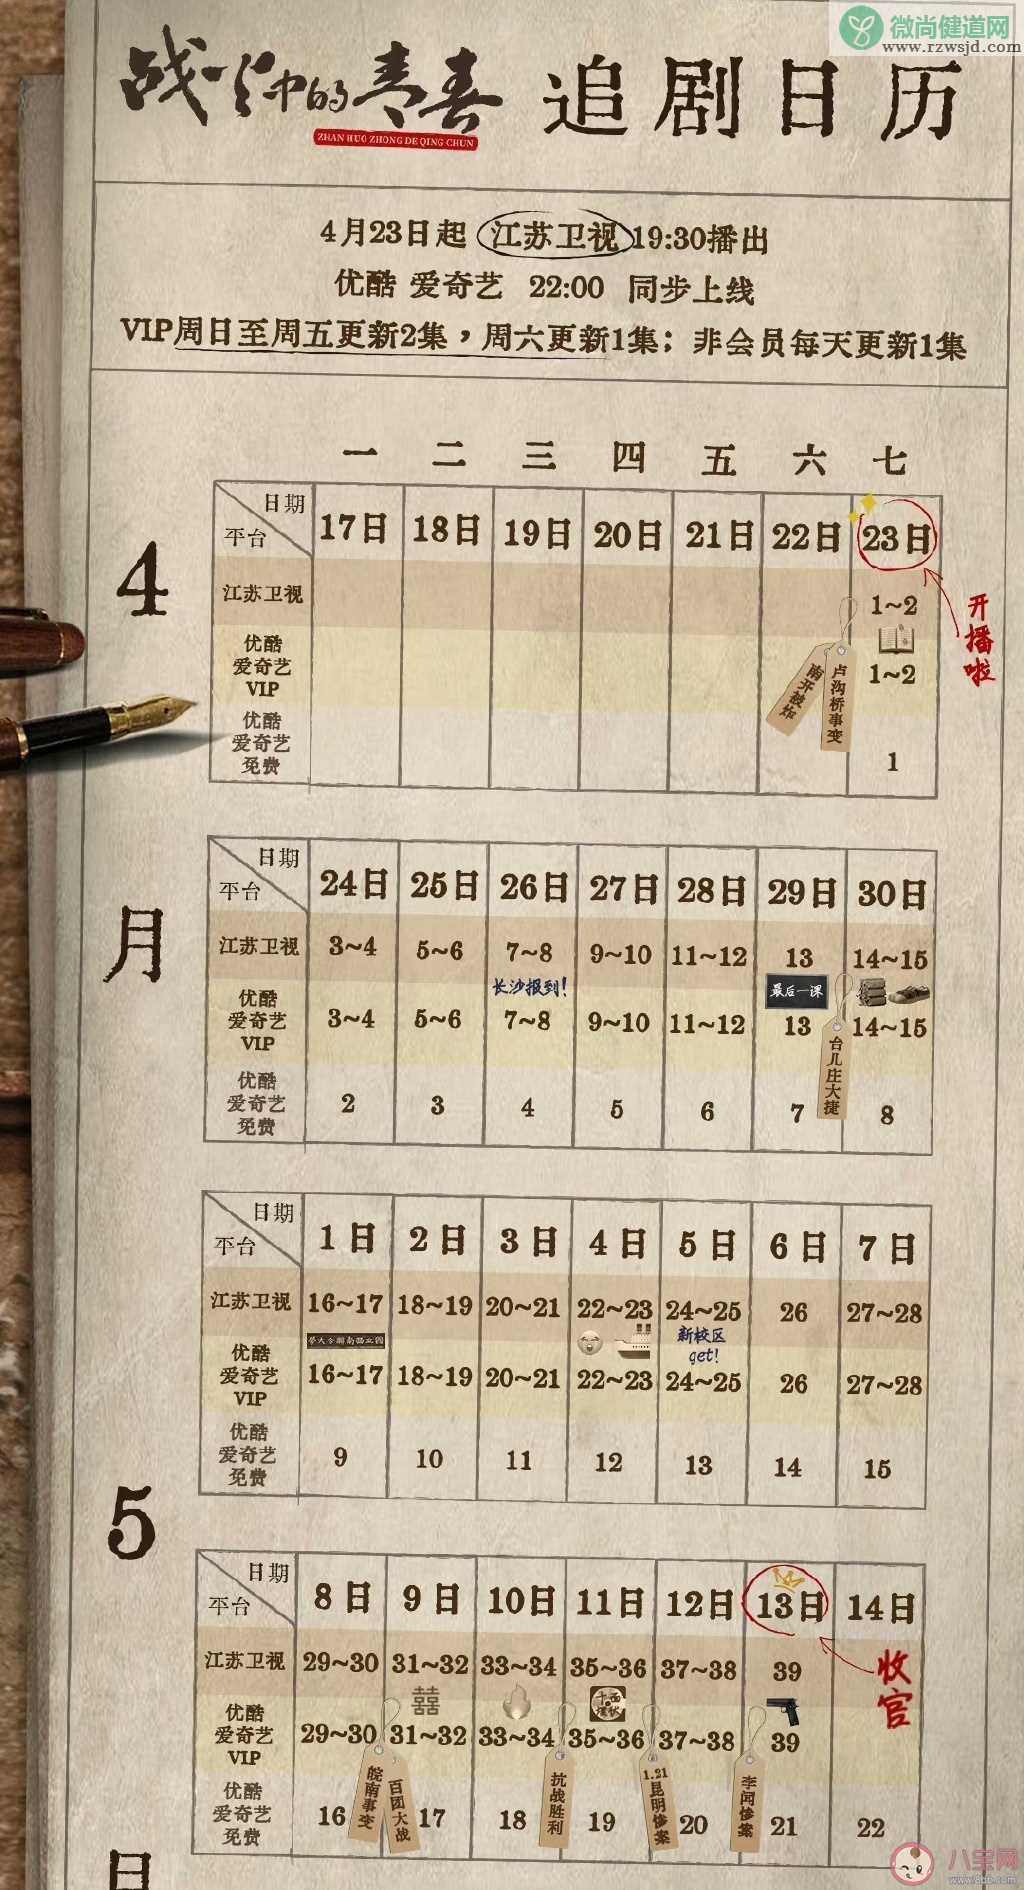 微尚健道网
www.rzwsjd.com
战火中的青春 追剧日历
ZHAN HUO ZHONG DE QING CHUN
4月23日起 江苏卫视 19:30播出
优酷 爱奇艺 22:00 同步上线
VIP周日至周五更新2集，周六更新1集；非会员每天更新1集
一 二 三 四 五 六 七
4
月
日期
平台
17日 18日 19日 20日 21日 22日 23日
江苏卫视 1~2
优酷
爱奇艺
VIP
1~2
优酷
爱奇艺
免费
1
南开被炸
卢沟桥事变
开播啦
日期
平台
24日 25日 26日 27日 28日 29日 30日
江苏卫视 3~4 5~6 7~8 9~10 11~12 13 14~15
长沙报到!
最后一课
优酷
爱奇艺
VIP
3~4 5~6 7~8 9~10 11~12 13 14~15
台儿庄大捷
优酷
爱奇艺
免费
2 3 4 5 6 7 8
5
月
日期
平台
1日 2日 3日 4日 5日 6日 7日
江苏卫视 16~17 18~19 20~21 22~23 24~25 26 27~28
學大合聯南西立國
新校区
get!
优酷
爱奇艺
VIP
16~17 18~19 20~21 22~23 24~25 26 27~28
优酷
爱奇艺
免费
9 10 11 12 13 14 15
日期
平台
8日 9日 10日 11日 12日 13日 14日
江苏卫视 29~30 31~32 33~34 35~36 37~38 39
收官
囍
十面
埋伏
优酷
爱奇艺
VIP
29~30 31~32 33~34 35~36 37~38 39
皖南事变
百团大战
抗战胜利
1.21
昆明惨案
李闻惨案
优酷
爱奇艺
免费
16 17 18 19 20 21 22
八宝网